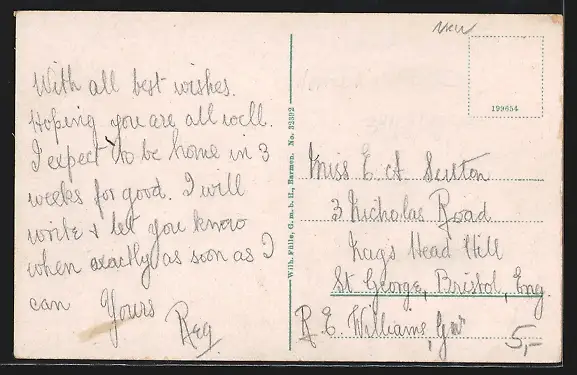 New
With all best wishes.
Hoping you are all well.
I expect to be home in 3
weeks for good. I will
write & let you know
when exactly as soon as I
can Yours
Reg
Wilh. Fülle, G. m. b. H., Barmen. No. 32392
199654
Miss E. A Sutton
3 Nicholas Road
Nags Head Hill
St. George, Bristol, Eng.
R. E. Williams, Gnr
5,-